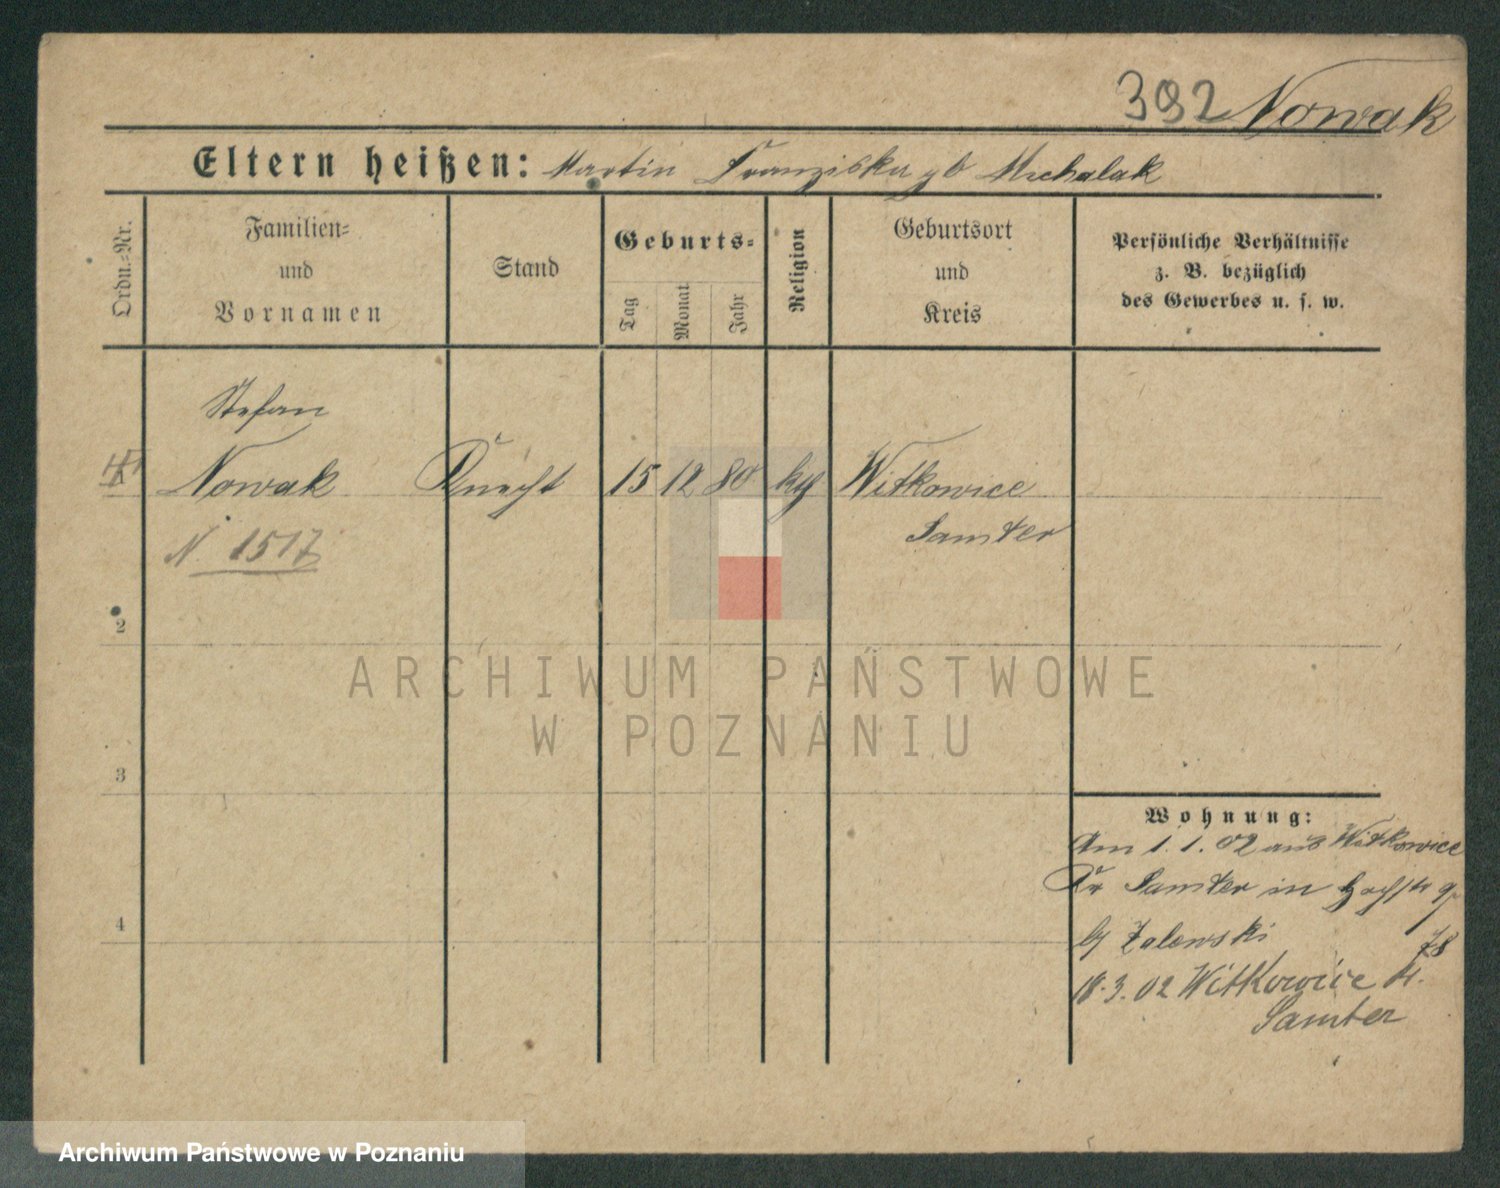 392 Nowak
Eltern heißen: Martin Franziska gb Michalak
Ordn.-Nr.
Familien-
und
Vornamen
Stand
Geburts-
Tag
Monat
Jahr
Religion
Geburtsort
und
Kreis
Persönliche Verhältnisse
z. B. bezüglich
des Gewerbes u. s. w.
Stefan
Nowak Knecht 15 12 80 kth Witkowice
Samter
N 1517
2
3
4
ARCHIWUM PAŃSTWOWE
W POZNANIU
Wohnung:
Am 1. 1. 02 aus Witkowice
Kr Samter in
b/ Zalewski 78
18.3.02 Witkowice Kr.
Samter
Archiwum Państwowe w Poznaniu